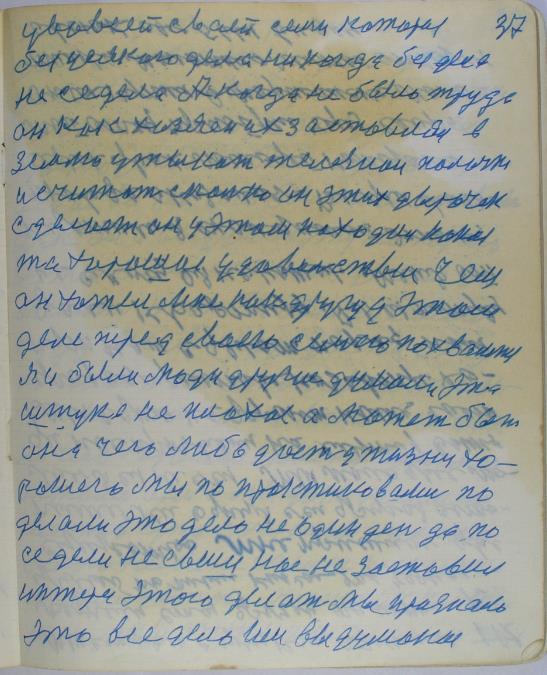 у вовсей своей семи которые 37
без усякого дела никогда без дела
не седела А когда не было труда
он как хозяен их заставляй в
землю утыкат железной палочк
и считат сколко он этих дырочек
сделает он у этом находил какое
та хорошие удовольствия Чем
он хотел мне как другу у этом
деле перед своего семьею похвалит
и были люди другие думали эта
штука не плохая а может быт
она чего либо дает у жизни хо-
рошего мы по практиковали по
делали это дело не один ден да по
седели не свыш нас не заставил
интерес этого делат мы признали
это все дело им выдуманое